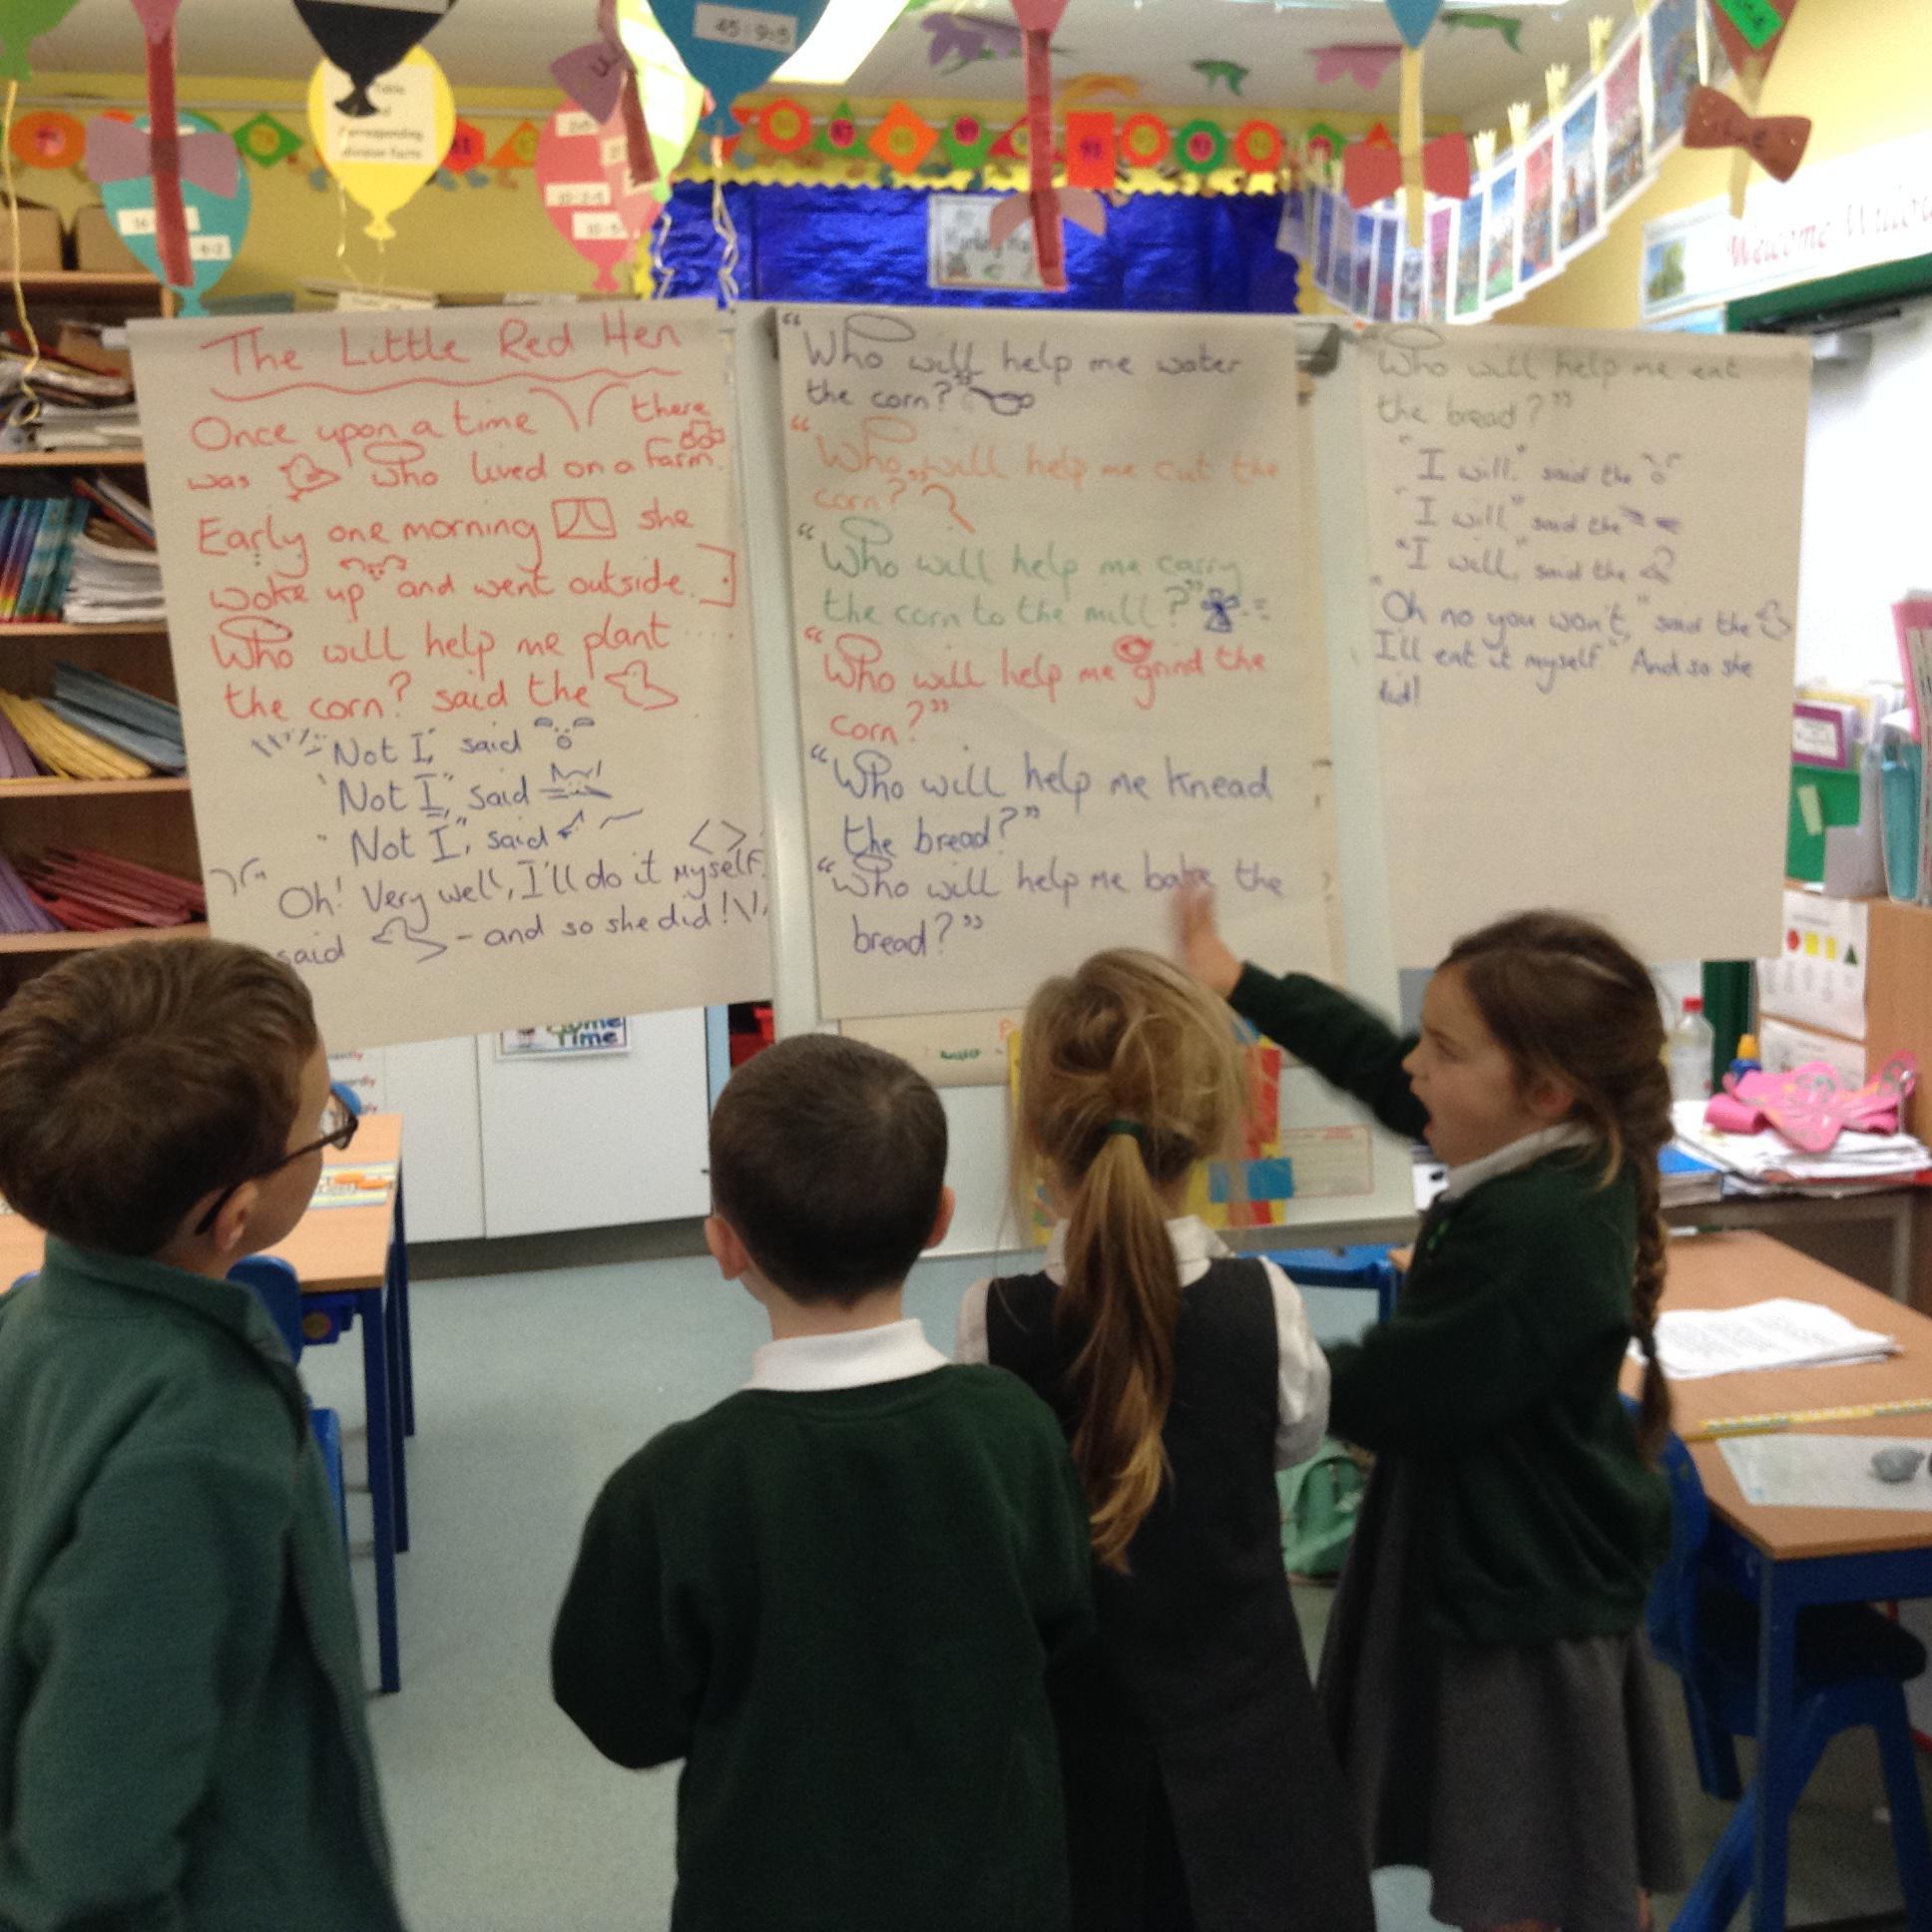 45÷9=5
corresponding
division facts
Welcome
The Little Red Hen
Once upon a time there
was who lived on a farm.
Early one morning she
woke up and went outside.
Who will help me plant ....
the corn? said the
"Not I," said
"Not I," said
"Not I," said
Oh! Very well, I'll do it myself
said - and so she did!
"Who will help me water
the corn?"
"Who will help me cut the
corn?"
"Who will help me carry
the corn to the mill?"
"Who will help me grind the
corn?"
"Who will help me knead
the bread?"
"Who will help me bake the
bread?"
Who will help me eat
the bread?"
"I will." said the
"I will" said the
"I will," said the
"Oh no you won't," said the
I'll eat it myself" And so she
did!
Time